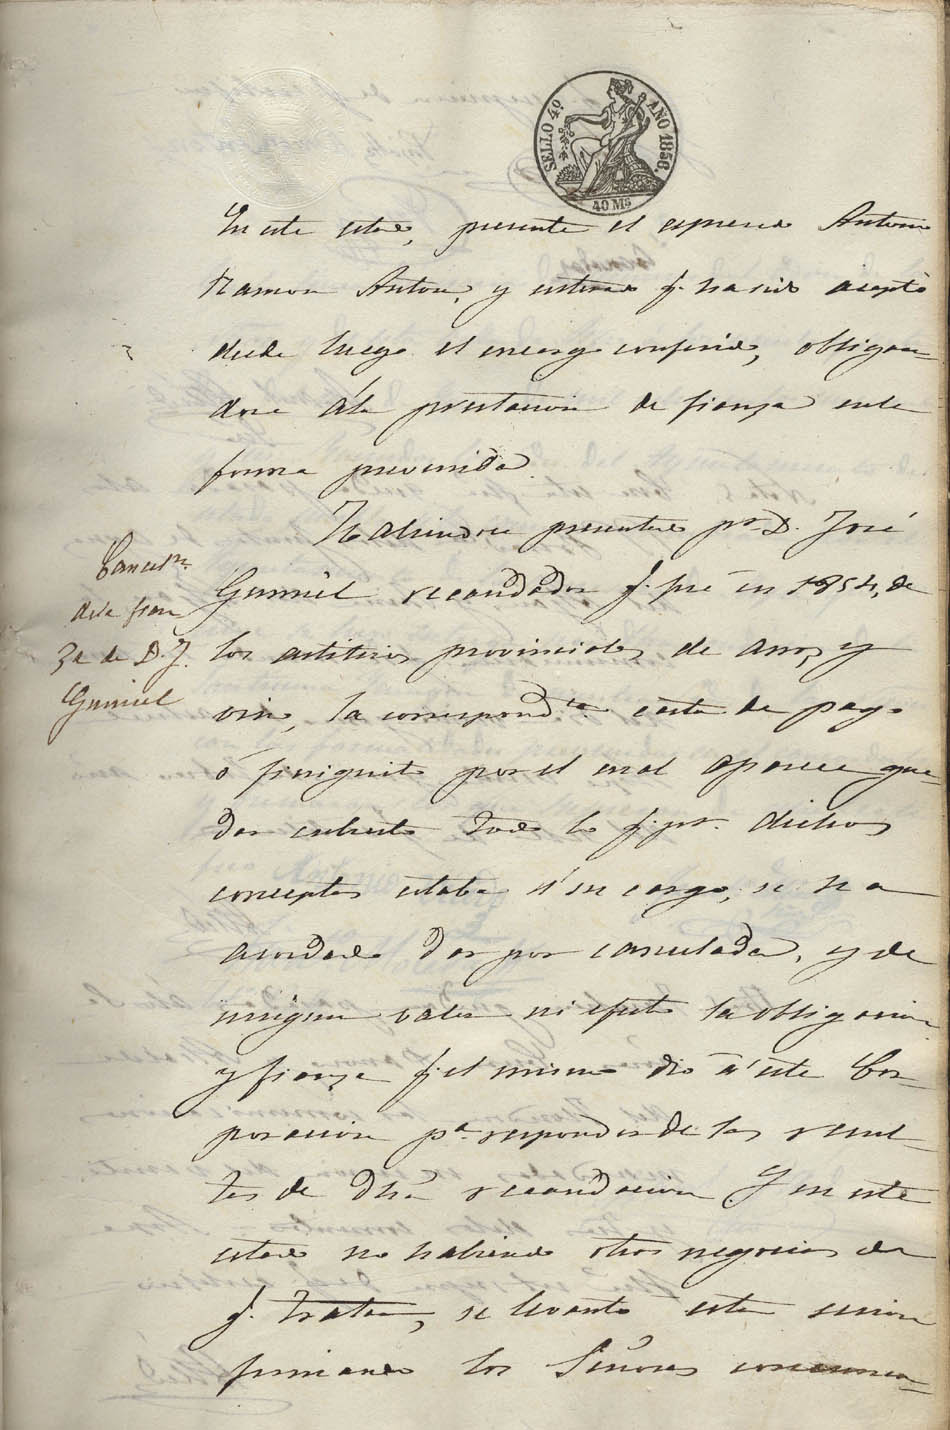 SELLO 4º. AÑO 1856.
40 Ms
En este estado, presente el espresado Antonio
Ramon Anton, y enterado q. ha sido aceptó
desde luego el encargo conferido, obligan-
dose á la prestacion de fianza en la
forma prevenida.
Habiendose presentado pr. D. José
Gumiel recaudador q. fué en 1854, de
los arbitrios provinciales, de arroz y
vino, la correspondte. carta de pago
ó finiquito por el cual aparece que-
dar cubierto todo lo q. pr. dichos
conceptos estaba á su cargo, se ha
acordado dar por cancelada, y de
ningun valor ni efecto la obligacion
y fianza q. el mismo dió á este Cor-
poracion pa. responder de las resul-
tas de dha. recaudacion Y en este
estado no habiendo otros negocios de
q. tratar, se levantó esta sesion
firmando los Señores concurren-
Cancelon.
de la fian
za de D. J.
Gumiel